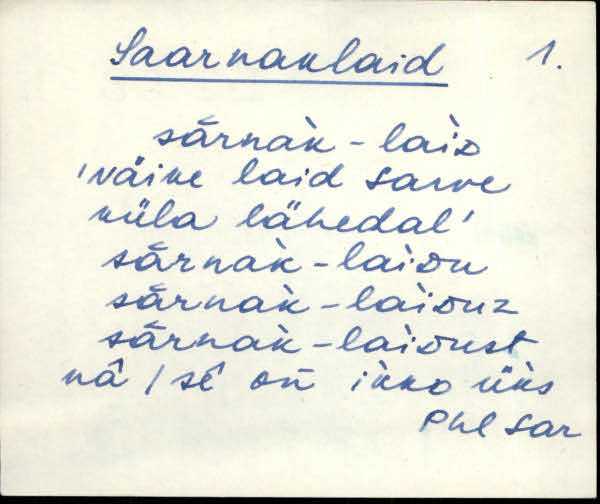 Saarnaklaid 1.
sārnàk-laiᴅ
'väike laid Sarve
küla lähedal'
sārnàk-laiᴅu
sārnàk-laiᴅuz
sārnàk-laiᴅust
nâ / sê on̄ ikko üks
Phl Sar